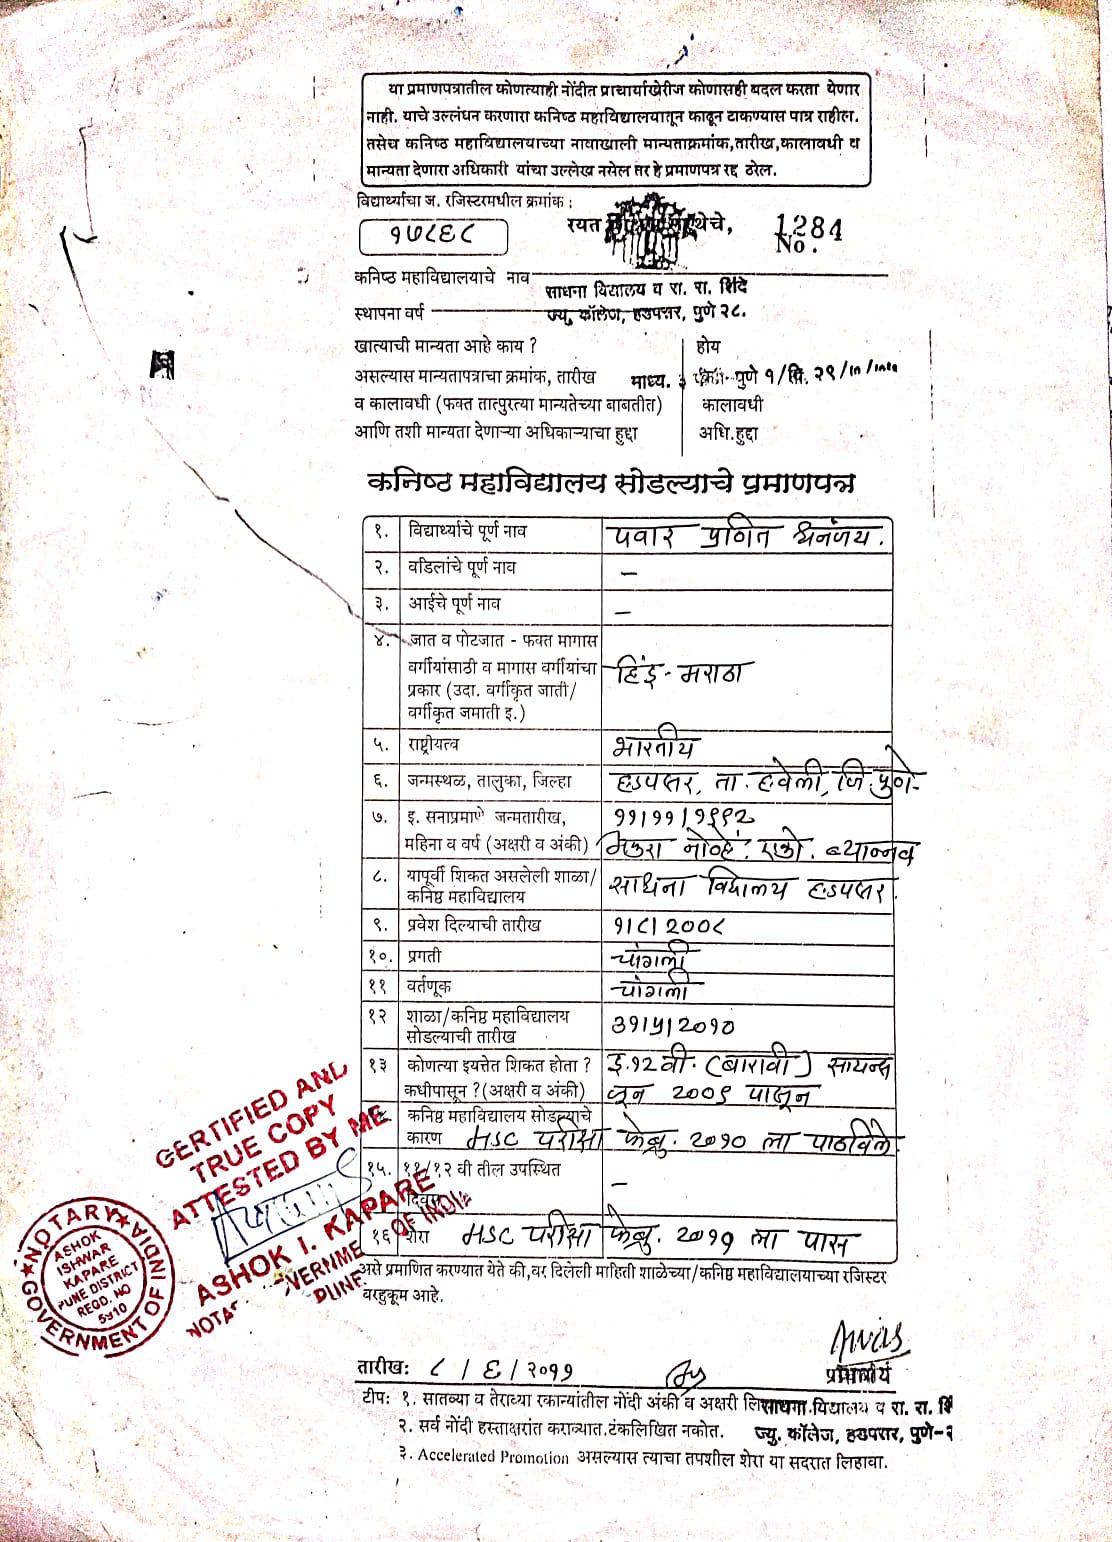 या प्रमाणपत्रातील कोणत्याही नोंदीत प्राचार्याखेरीज कोणासही बदल करता येणार
नाही. याचे उल्लंघन करणारा कनिष्ठ महाविद्यालयातून काढून टाकण्यास पात्र राहील.
तसेच कनिष्ठ महाविद्यालयाच्या नावाखाली मान्यताक्रमांक,तारीख,कालावधी व
मान्यता देणारा अधिकारी यांचा उल्लेख नसेल तर हे प्रमाणपत्र रद्द ठरेल.
विद्यार्थ्याचा ज. रजिस्टरमधील क्रमांक :
१७८६८
रयत
No. 1284
कनिष्ठ महाविद्यालयाचे नाव साधना विद्यालय व रा. रा. शिंदे
स्थापना वर्ष ज्यु. कॉलेज, हडपसर, पुणे २८.
खात्याची मान्यता आहे काय ? होय
असल्यास मान्यतापत्राचा क्रमांक, तारीख माध्य. पुणे १/सि. २९
व कालावधी (फक्त तात्पुरत्या मान्यतेच्या बाबतीत) कालावधी
आणि तशी मान्यता देणाऱ्या अधिकाऱ्याचा हुद्दा अधि.हुद्दा
कनिष्ठ महाविद्यालय सोडल्याचे प्रमाणपत्र
१. विद्यार्थ्याचे पूर्ण नाव पवार प्रणित धनंजय.
२. वडिलांचे पूर्ण नाव –
३. आईचे पूर्ण नाव –
४. जात व पोटजात - फक्त मागास
वर्गीयांसाठी व मागास वर्गीयांचा हिंदू - मराठा
प्रकार (उदा. वर्गीकृत जाती/
वर्गीकृत जमाती इ.)
५. राष्ट्रीयत्व भारतीय
६. जन्मस्थळ, तालुका, जिल्हा हडपसर, ता. हवेली, जि. पुणे-
७. इ. सनाप्रमाणे जन्मतारीख, ११/११/१९९२
महिना व वर्ष (अक्षरी व अंकी) अकरा नोव्हें. एको. ब्यान्नव
८. यापूर्वी शिकत असलेली शाळा/
कनिष्ठ महाविद्यालय साधना विद्यालय हडपसर
९. प्रवेश दिल्याची तारीख १/८/२००८
१०. प्रगती चांगली
११ वर्तणूक चांगली
१२ शाळा/कनिष्ठ महाविद्यालय
सोडल्याची तारीख ३१/५/२०१०
१३ कोणत्या इयत्तेत शिकत होता ? इ.१२ वी. (बारावी) सायन्स
कधीपासून ?(अक्षरी व अंकी) जून २००९ पासून
कनिष्ठ महाविद्यालय सोडल्याचे
कारण HSC परीक्षा फेब्रु. २०१० ला पाठविले
१५. ११/१२ वी तील उपस्थित
दिवस –
१६ शेरा HSC परीक्षा फेब्रु. २०११ ला पास
असे प्रमाणित करण्यात येते की,वर दिलेली माहिती शाळेच्या/कनिष्ठ महाविद्यालयाच्या रजिस्टर
बरहुकूम आहे.
CERTIFIED AND
TRUE COPY
ATTESTED BY ME
ASHOK I. KAPARE
OF INDIA
PUNE
NOTARY
GOVERNMENT OF INDIA
ASHOK
ISHWAR
KAPARE
PUNE DISTRICT
REGD. NO
5910
तारीख: ८ / ६ / २०११
प्राचार्य
टीप: १. सातव्या व तेराव्या रकान्यांतील नोंदी अंकी व अक्षरी
साधना विद्यालय व रा. रा. शि
२. सर्व नोंदी हस्ताक्षरांत कराव्यात.टंकलिखित नकोत.
ज्यु. कॉलेज, हडपसर, पुणे-२
३. Accelerated Promotion असल्यास त्याचा तपशील शेरा या सदरात लिहावा.